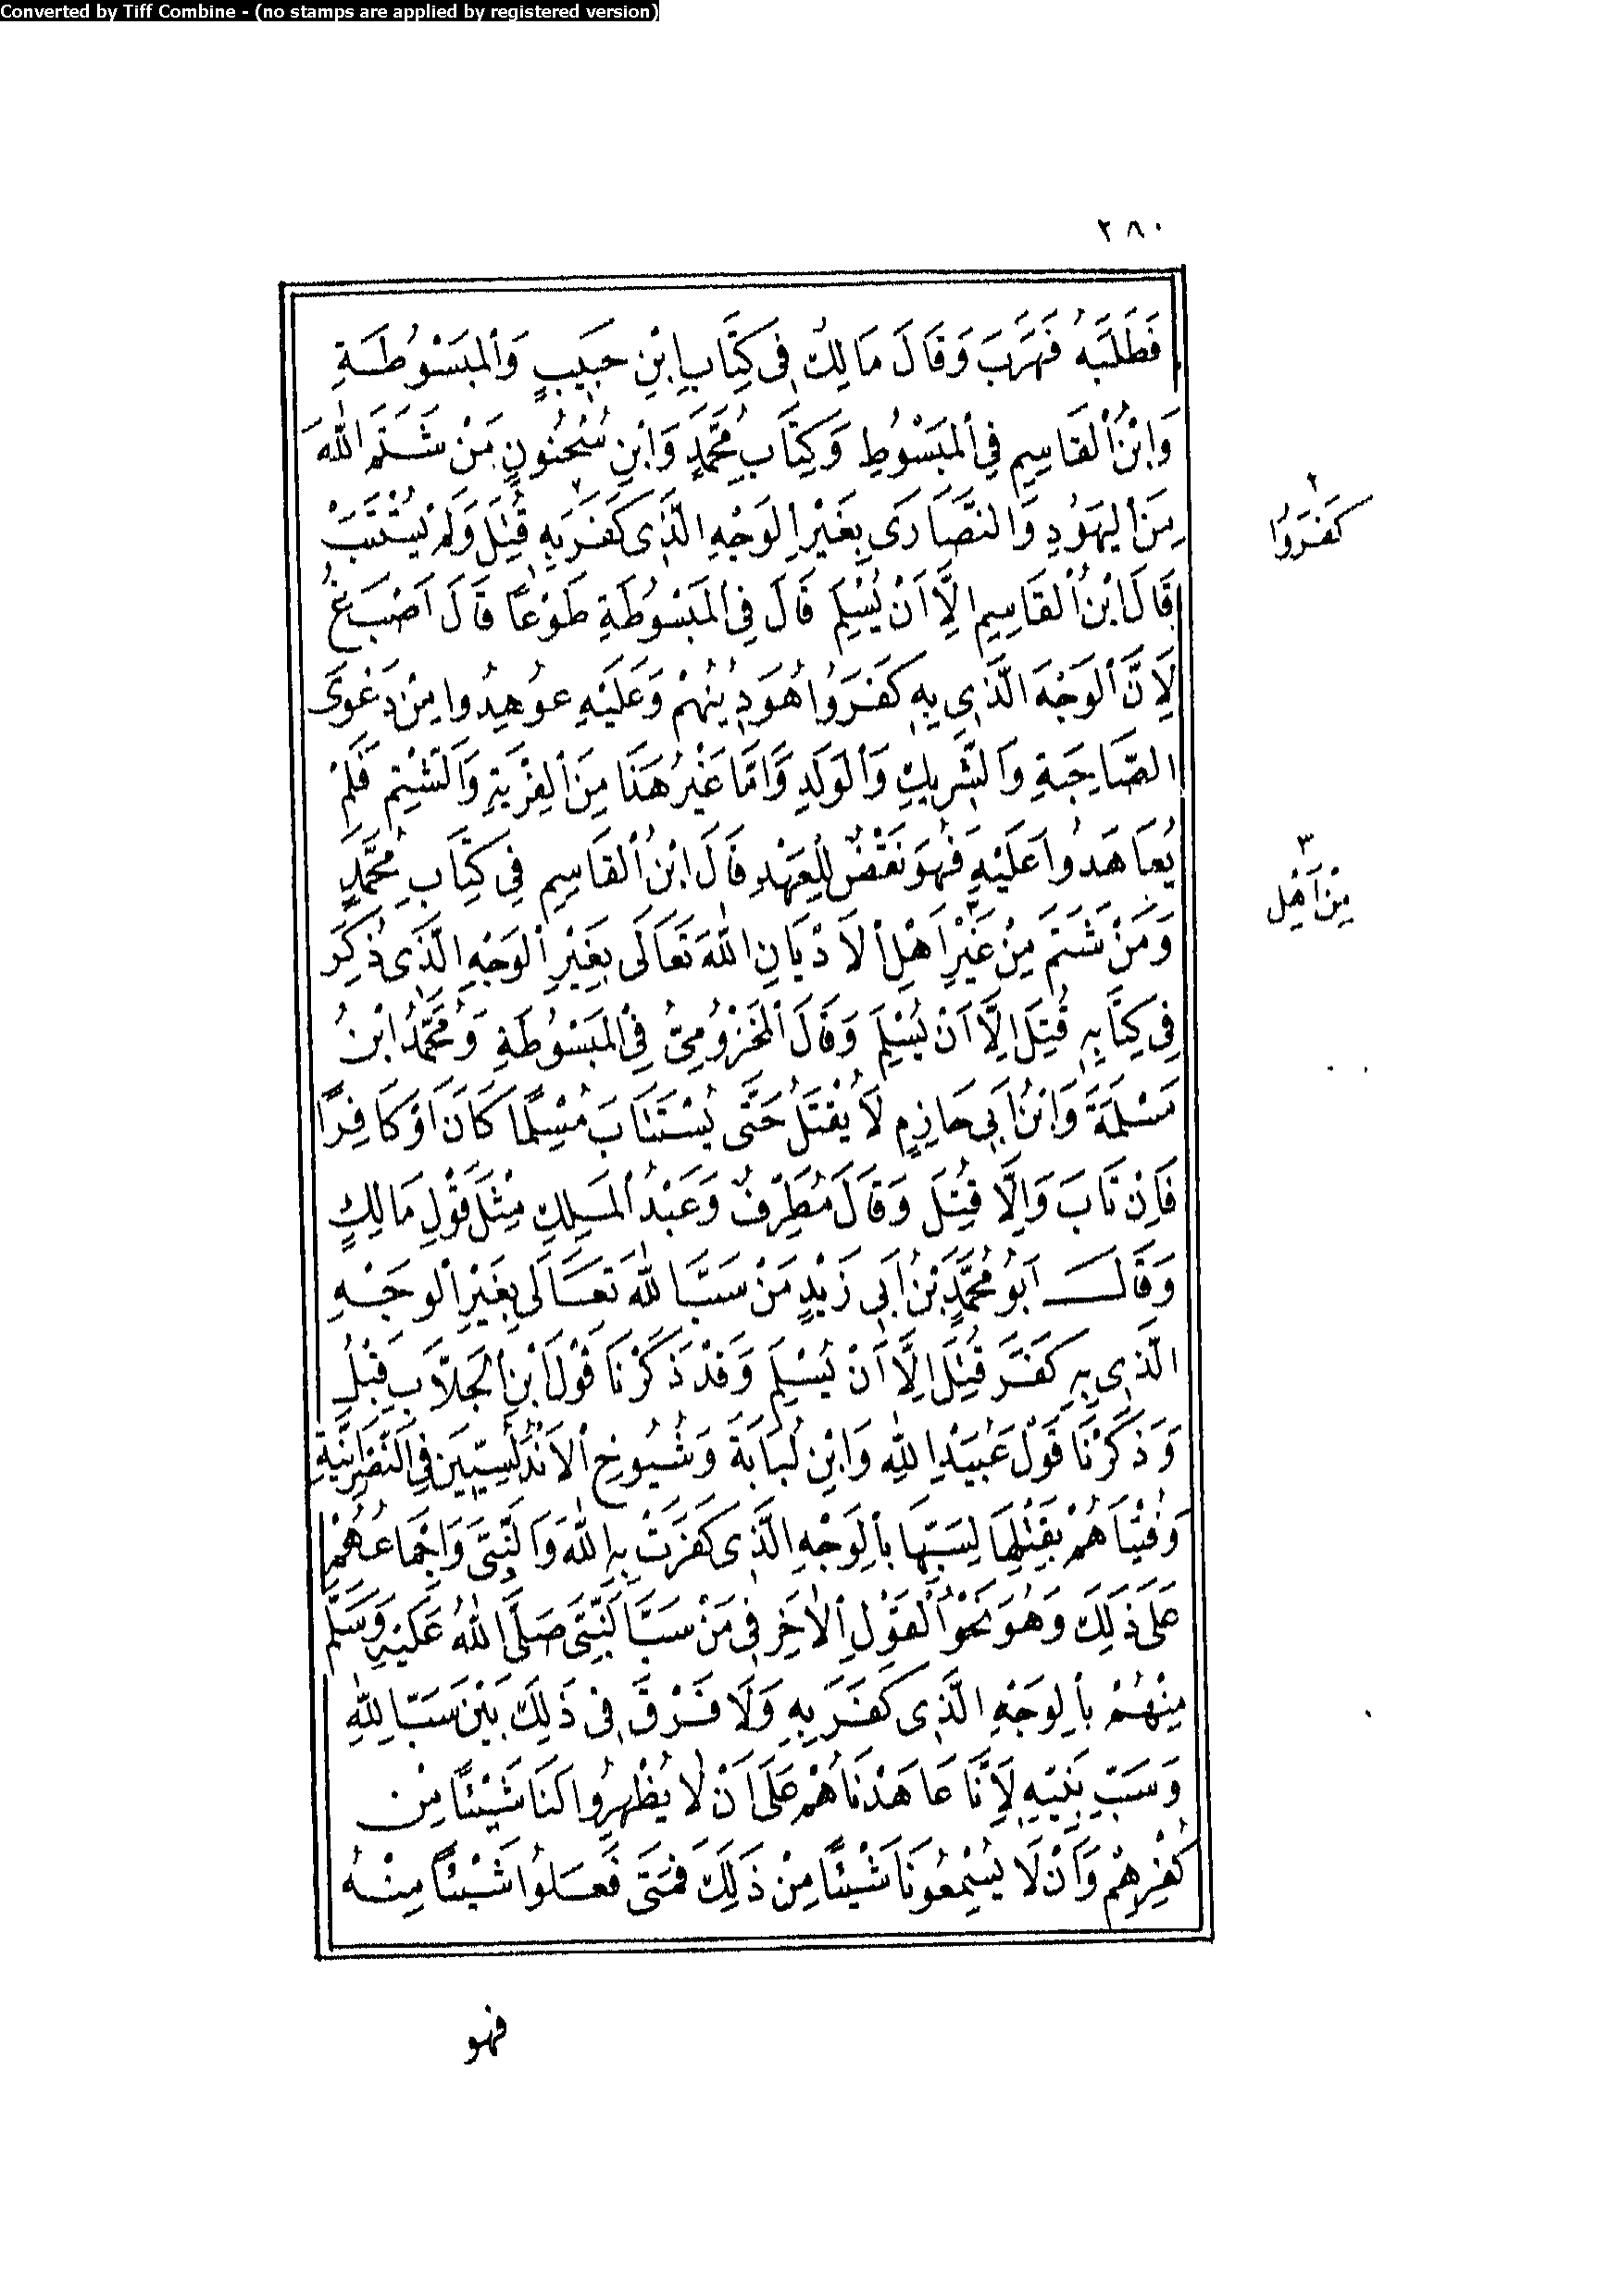 Converted by Tiff Combine - (no stamps are applied by registered version)
٢٨٠
فَطَلَبَهُ فَهَرَبَ وَقَالَ مَالِكٌ فِى كِتَابِ ابْنِ حَبِيبٍ وَالْمَبْسُوطَةِ
وَابْنُ الْقَاسِمِ فِى الْمَبْسُوطِ وَكِتَابِ مُحَمَّدٍ وَابْنِ سُحْنُونٍ مَنْ شَتَمَ اللّٰهَ
مِنَ الْيَهُودِ وَالنَّصَارَى بِغَيْرِ الْوَجْهِ الَّذِى كَفَرَ بِهِ ٢ قُتِلَ وَلَمْ يُسْتَتَبْ
كَفَرُوا ٢
قَالَ ابْنُ الْقَاسِمِ اِلَّا اَنْ يُسْلِمَ قَالَ فِى الْمَبْسُوطَةِ طَوْعًا قَالَ اَصْبَغُ
لِاَنَّ الْوَجْهَ الَّذِى بِهِ كَفَرُوا هُوَ دِينُهُمْ وَعَلَيْهِ عُوهِدُوا مِنْ دَعْوَى
الصَّاحِبَةِ وَالشَّرِيكِ وَالْوَلَدِ وَاَمَّا غَيْرُ هٰذَا مِنَ الْفِرْيَةِ وَالشَّتْمِ فَلَمْ
يُعَاهَدُوا عَلَيْهِ فَهُوَ نَقْضٌ لِلْعَهْدِ قَالَ ابْنُ الْقَاسِمِ فِى كِتَابِ مُحَمَّدٍ
وَمَنْ شَتَمَ مِنْ غَيْرِ ٣ اَهْلِ الْاَدْيَانِ اللّٰهَ تَعَالَى بِغَيْرِ الْوَجْهِ الَّذِى ذُكِرَ
مِنْ اَهْلِ ٣
فِى كِتَابِهِ قُتِلَ اِلَّا اَنْ يُسْلِمَ وَقَالَ الْمَخْزُومِىُّ فِى الْمَبْسُوطَةِ وَمُحَمَّدُ ابْنُ
مَسْلَمَةَ وَابْنُ اَبِى حَازِمٍ لَا يُقْتَلُ حَتَّى يُسْتَتَابَ مُسْلِمًا كَانَ اَوْ كَافِرًا
فَاِنْ تَابَ وَاِلَّا قُتِلَ وَقَالَ مُطَرِّفٌ وَعَبْدُ الْمَلِكِ مِثْلَ قَوْلِ مَالِكٍ
وَقَالَ اَبُو مُحَمَّدِ بْنُ اَبِى زَيْدٍ مَنْ سَبَّ اللّٰهَ تَعَالَى بِغَيْرِ الْوَجْهِ
الَّذِى بِهِ كَفَرَ قُتِلَ اِلَّا اَنْ يُسْلِمَ وَقَدْ ذَكَرْنَا قَوْلَ ابْنِ الْجَلَّابِ قَبْلُ
وَذَكَرْنَا قَوْلَ عُبَيْدِ اللّٰهِ وَابْنِ لُبَابَةَ وَشُيُوخِ الْاَنْدَلُسِيِّينَ فِى النَّصْرَانِيَّةِ
وَفُتْيَاهُمْ بِقَتْلِهَا لِسَبِّهَا بِالْوَجْهِ الَّذِى كَفَرَتْ بِهِ اللّٰهَ وَالنَّبِىَّ وَاِجْمَاعُهُمْ
عَلَى ذٰلِكَ وَهُوَ نَحْوُ الْقَوْلِ الْاٰخَرِ فِى مَنْ سَبَّ النَّبِىَّ صَلَّى اللّٰهُ عَلَيْهِ وَسَلَّمَ
مِنْهُمْ بِالْوَجْهِ الَّذِى كَفَرَ بِهِ وَلَا فَرْقَ فِى ذٰلِكَ بَيْنَ سَبِّ اللّٰهِ
وَسَبِّ نَبِيِّهِ لِاَنَّا عَاهَدْنَاهُمْ عَلَى اَنْ لَا يُظْهِرُوا لَنَا شَيْئًا مِنْ
كُفْرِهِمْ وَاَنْ لَا يُسْمِعُونَا شَيْئًا مِنْ ذٰلِكَ فَمَتَى فَعَلُوا شَيْئًا مِنْهُ
فهو